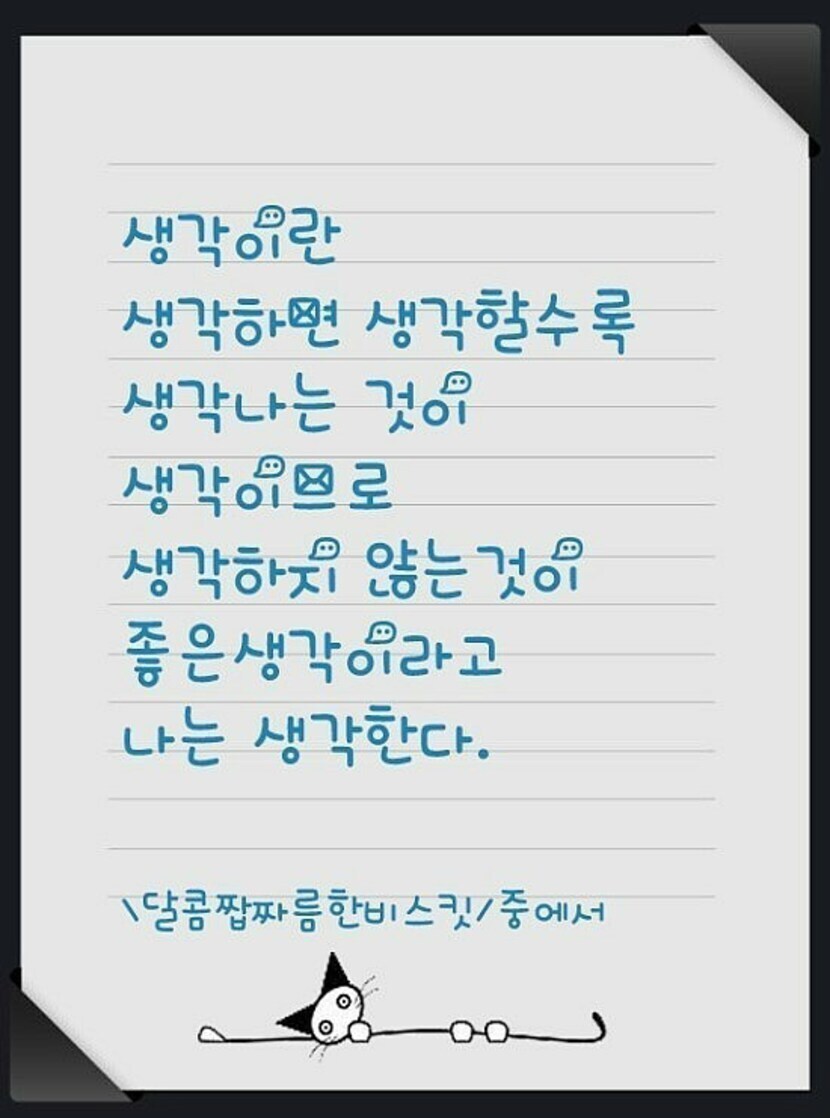 생각이란
생각하면 생각할수록
생각나는 것이
생각이므로
생각하지 않는것이
좋은생각이라고
나는 생각한다.
\달콤짭짜름한비스킷/중에서